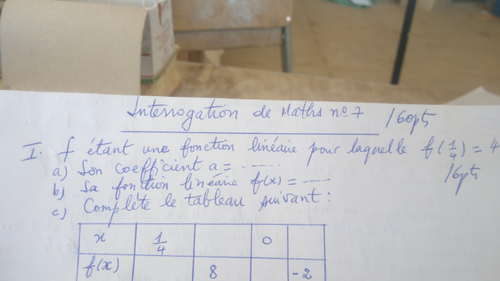 Interrogation de Maths n°7 /60pts
I. f étant une fonction linéaire pour laquelle f(1/4) = 4
a) Son coefficient a = ...... /16pts
b) Sa fonction linéaire f(x) = .....
c) Complète le tableau suivant :
x 1/4 0
f(x) 8 -2